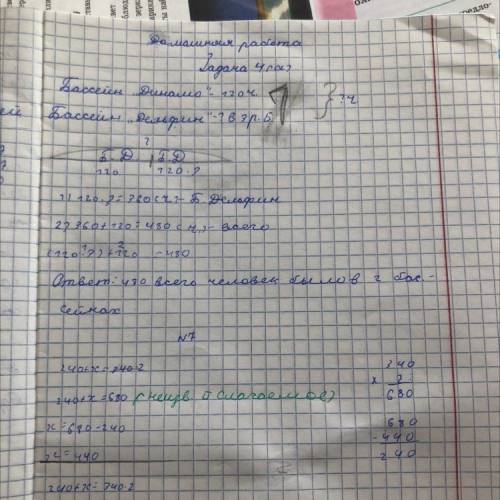 Домашняя работа
Задача
Бассейн "Динамо" - 120 ч.
Бассейн "Дельфин" - ? в 3 р. Б. } ? ч
?
Б. Д | Б. Д
120 120·3
1) 120·3=360 (ч.) - Б Дельфин
2) 360+120=480 (ч.) - всего
(120·3)+120 =480
Ответ: 480 всего человек было в 2 бас-
сейнах
№7
240+х=340·2
340
х 2
680
240+х=680 (неизв. II слагаемое)
х=680-240
680
-440
240
х=440
240+х=340·2